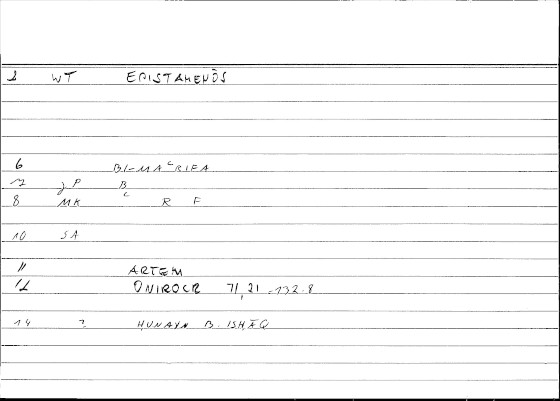 2 WT EPISTAMENŌS
6 BI-MAʿRIFA
7 JP B
8 MK ʿ R F
10 SA
11 ARTEM
12 ONIROCR 71,21 - 132.8
14 2 ḤUNAYN B. ISḤĀQ